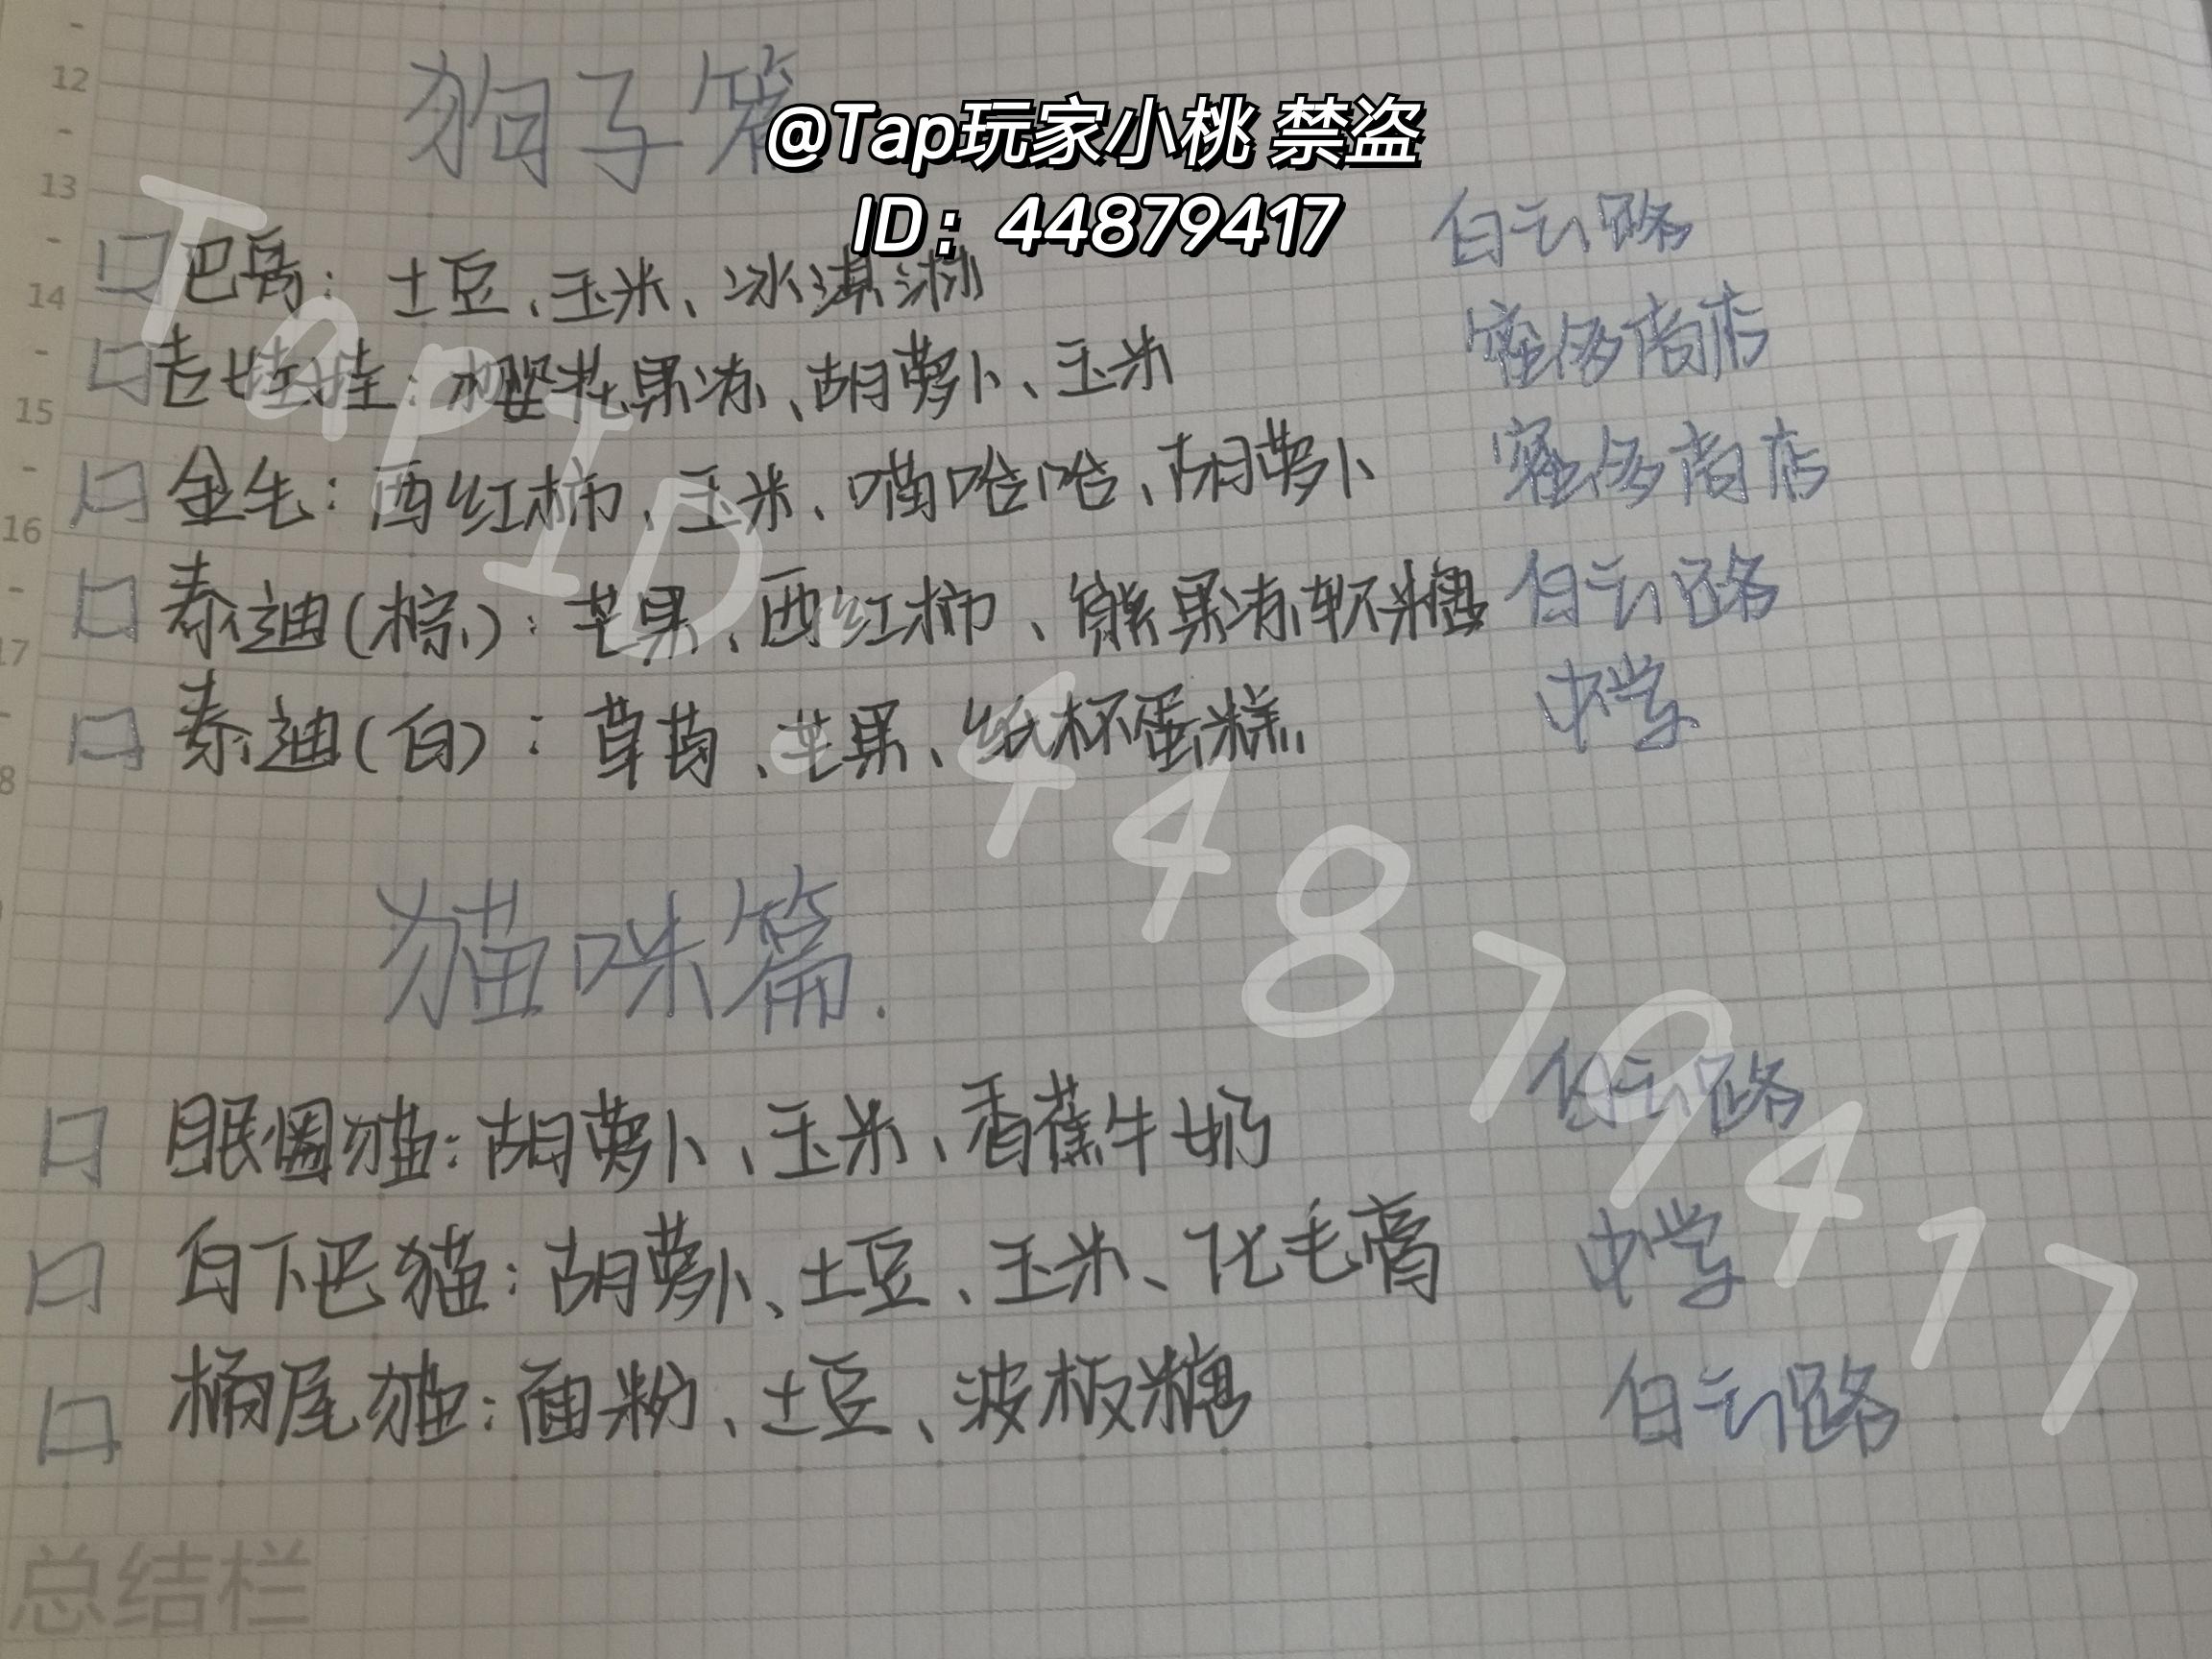 狗子篇
@Tap玩家小桃 禁盗
ID：44879417
12
13
14
15
16
17
8
□巴哥：土豆、玉米、冰淇淋 白云路
□吉娃娃：樱花果冻、胡萝卜、玉米 商店
□金毛：西红柿、玉米、喵哈哈、胡萝卜 商店
□泰迪(棕)：芒果、西红柿、熊果冻软糖 白云路
□泰迪(白)：草莓、芒果、纸杯蛋糕 中学
TapID：44879417
猫咪篇.
□眼圈猫：胡萝卜、玉米、香蕉牛奶 白云路
□白下巴猫：胡萝卜、土豆、玉米、化毛膏 中学
□桶尾猫：面粉、土豆、波板糖 白云路
总结栏